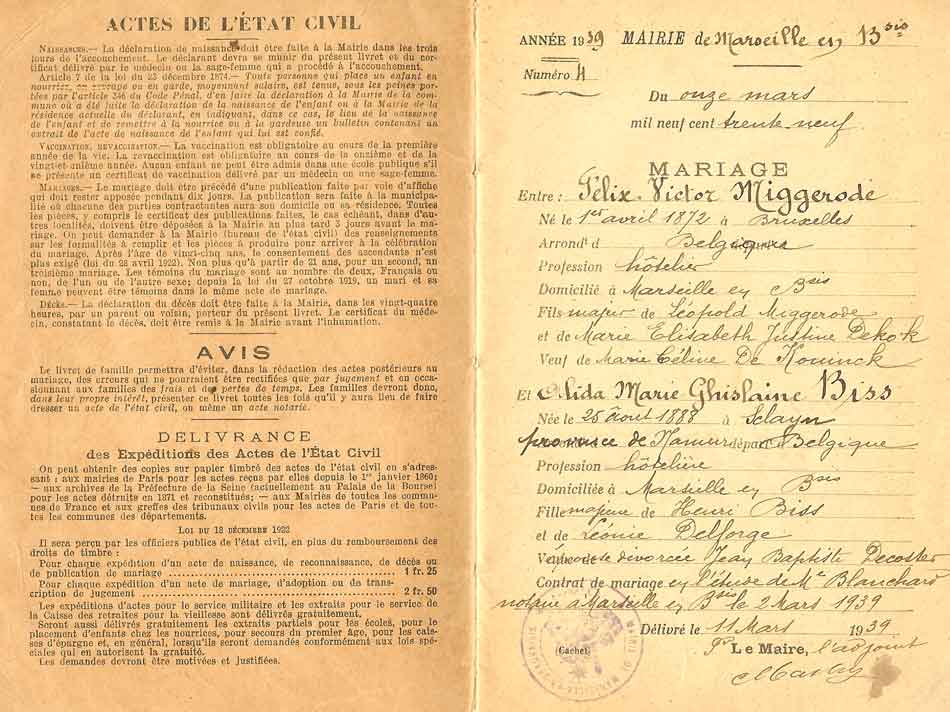 ACTES DE L'ÉTAT CIVIL
NAISSANCES.— La déclaration de naissance doit être faite à la Mairie dans les trois
jours de l'accouchement. Le déclarant devra se munir du présent livret et du cer-
tificat délivré par le médecin ou la sage-femme qui a procédé à l'accouchement.
Article 7 de la loi du 23 décembre 1874.— Toute personne qui place un enfant en
nourrice, en sevrage ou en garde, moyennant salaire, est tenue, sous les peines por-
tées par l'article 346 du Code Pénal, d'en faire la déclaration à la Mairie de la com-
mune où a été faite la déclaration de la naissance de l'enfant ou à la Mairie de la
résidence actuelle du déclarant, en indiquant, dans ce cas, le lieu de la naissance
de l'enfant et de remettre à la nourrice ou à la gardeuse un bulletin contenant un
extrait de l'acte de naissance de l'enfant qui lui est confié.
VACCINATION, REVACCINATION.— La vaccination est obligatoire au cours de la première
année de la vie. La revaccination est obligatoire au cours de la onzième et de la
vingt-et-unième année. Aucun enfant ne peut être admis dans une école publique s'il
ne présente un certificat de vaccination délivré par un médecin ou une sage-femme.
MARIAGES.— Le mariage doit être précédé d'une publication faite par voie d'affiche
qui doit rester apposée pendant dix jours. La publication sera faite à la municipa-
lité où chacune des parties contractantes aura son domicile ou sa résidence. Toutes
les pièces, y compris le certificat des publications faites, le cas échéant, dans d'au-
tres localités, doivent être déposées à la Mairie au plus tard 3 jours avant le ma-
riage. On peut demander à la Mairie (bureau de l'état civil) des renseignements
sur les formalités à remplir et les pièces à produire pour arriver à la célébration
du mariage. Après l'âge de vingt-cinq ans, le consentement des ascendants n'est
plus exigé (loi du 28 avril 1922). Non plus qu'à partir de 21 ans, pour un second, un
troisième mariage. Les témoins du mariage sont au nombre de deux, Français ou
non, de l'un ou de l'autre sexe; depuis la loi du 27 octobre 1919, un mari et sa
femme peuvent être témoins dans le même acte de mariage.
DÉCÈS.— La déclaration du décès doit être faite à la Mairie, dans les vingt-quatre
heures, par un parent ou voisin, porteur du présent livret. Le certificat du méde-
cin, constatant le décès, doit être remis à la Mairie avant l'inhumation.
AVIS
Le livret de famille permettra d'éviter, dans la rédaction des actes postérieurs au
mariage, des erreurs qui ne pourraient être rectifiées que par jugement et en occa-
sionnant aux familles des frais et des pertes de temps. Les familles devront donc,
dans leur propre intérêt, présenter ce livret toutes les fois qu'il y aura lieu de faire
dresser un acte de l'état civil, ou même un acte notarié.
DÉLIVRANCE
des Expéditions des Actes de l'État Civil
On peut obtenir des copies sur papier timbré des actes de l'état civil en s'adres-
sant : aux mairies de Paris pour les actes reçus par elles depuis le 1er janvier 1860;
— aux archives de la Préfecture de la Seine (actuellement au Palais de la Bourse)
pour les actes détruits en 1871 et reconstitués; — aux Mairies de toutes les commu-
nes de France et aux greffes des tribunaux civils pour les actes de Paris et de tou-
tes les communes des départements.
LOI DU 18 DÉCEMBRE 1922
Il sera perçu par les officiers publics de l'état civil, en plus du remboursement des
droits de timbre :
Pour chaque expédition d'un acte de naissance, de reconnaissance, de décès ou
de publication de mariage ........ 1 fr. 25
Pour chaque expédition d'un acte de mariage, d'adoption ou de trans-
cription de jugement ........ 2 fr. 50
Les expéditions d'actes pour le service militaire et les extraits pour le service de
la Caisse des retraites pour la vieillesse sont délivrés gratuitement.
Seront aussi délivrés gratuitement les extraits partiels pour les écoles, pour le
placement d'enfants chez les nourrices, pour secours du premier âge, pour les cais-
ses d'épargne et, en général, lorsqu'ils seront demandés conformément aux lois spé-
ciales qui en autorisent la gratuité.
Les demandes devront être motivées et justifiées.
ANNÉE 1939 MAIRIE de Marseille en 13 bis
Numéro 4
Du onze mars
mil neuf cent trente neuf
MARIAGE
Entre : Félix Victor Miggerode
Né le 1er avril 1872 à Bruxelles
Arrondt d Belgique
Profession hôtelier
Domicilié à Marseille en Bis
Fils majeur de Léopold Miggerode
et de Marie Elisabeth Justine Dekok
Veuf de Marie Céline De Kouninck
Et Alida Marie Ghislaine Biss
Née le 25 août 1888 à Sclayn
province de Namur départ Belgique
Profession hôtelière
Domiciliée à Marseille en Bis
Fille majeure de Henri Biss
et de Léonie Delforge
divorcée Jean Baptiste Decoster
Contrat de mariage en l'étude de Me Blanchard
notaire à Marseille en Bis le 2 Mars 1939
Délivré le 11 Mars 1939
(Cachet)
Pr Le Maire, l'adjoint